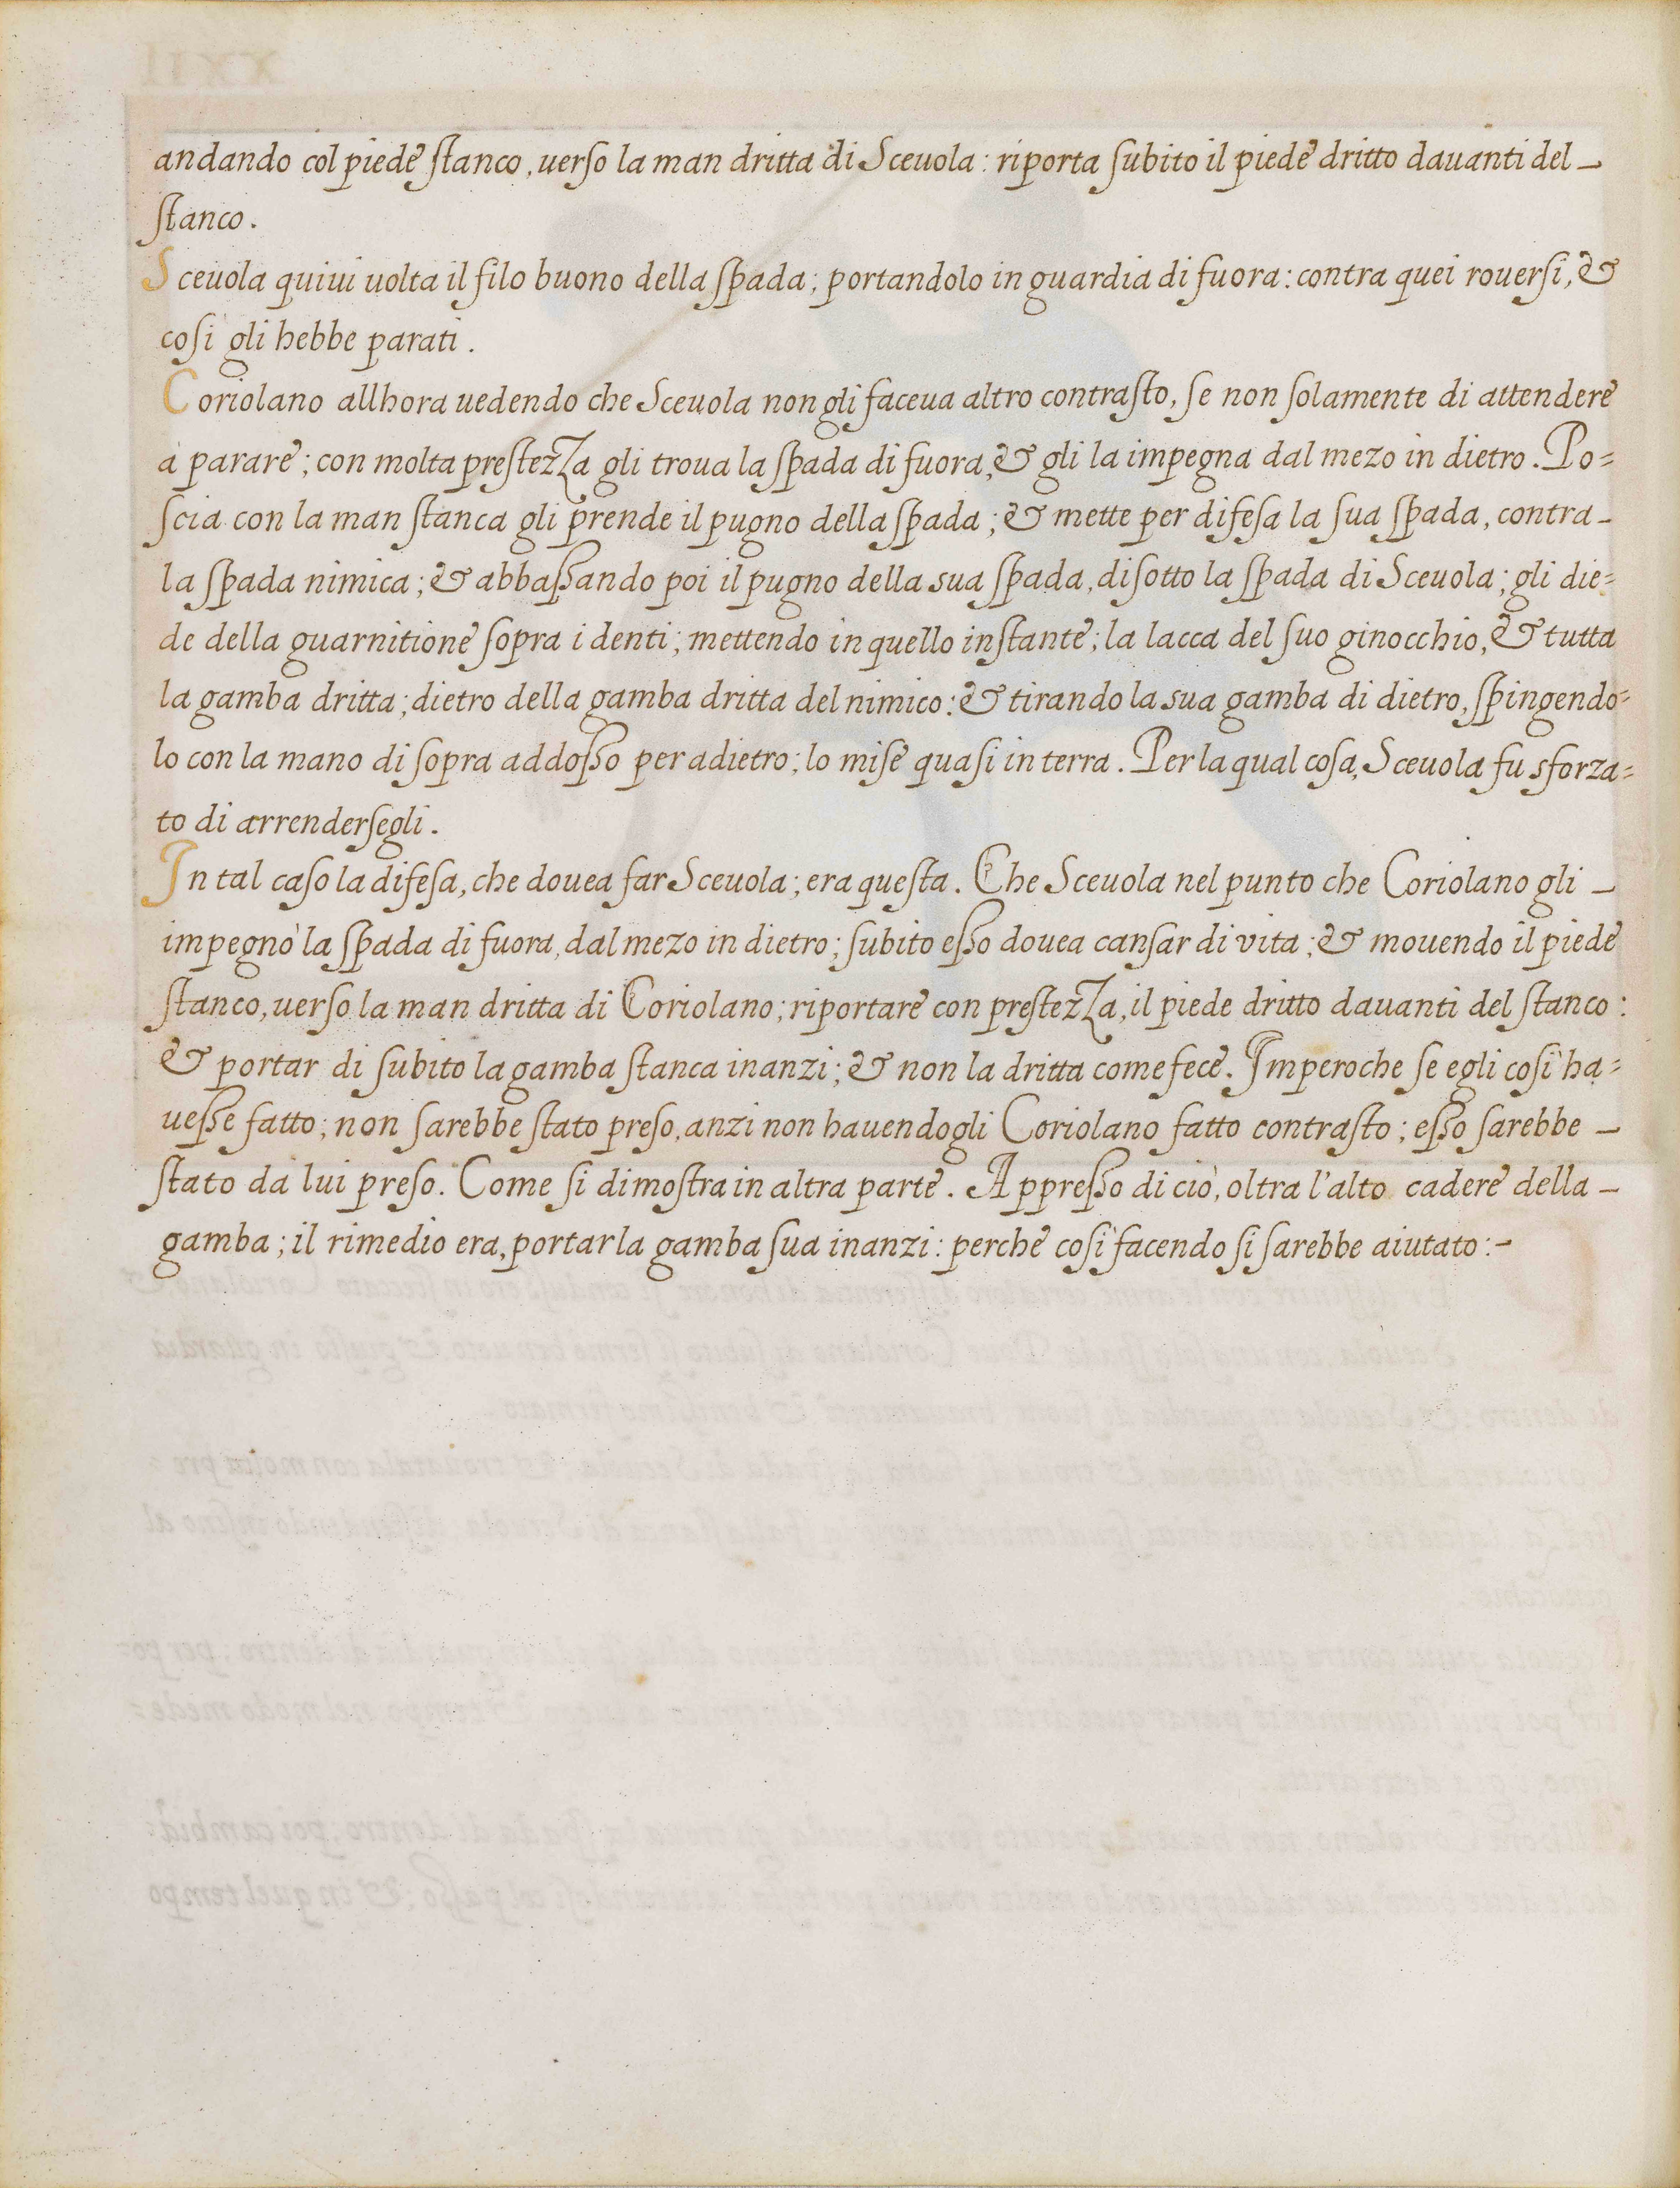 andando col piede ſtanco, uerſo la man dritta di Sceuola: riporta ſubito il piede dritto dauanti del _
ſtanco.
Sceuola quiui uolta il filo buono della ſpada; portandolo in guardia di fuora: contra quei rouerſi, &
coſi gli hebbe parati.
Coriolano allhora uedendo che Sceuola non gli faceua altro contraſto, ſe non ſolamente di attendere
à parare; con molta preſtezza gli troua la ſpada di fuora, & gli la impegna dal mezo in dietro. Po=
ſcia con la man ſtanca gli prende il pugno della ſpada; & mette per difeſa la ſua ſpada, contra _
la ſpada nimica; & abbaſsando poi il pugno della sua ſpada, di ſotto la ſpada di Sceuola; gli die=
de della guarnitione ſopra i denti; mettendo in quello inſtante; la lacca del ſuo ginocchio, & tutta
la gamba dritta; dietro della gamba dritta del nimico: & tirando la sua gamba di dietro, ſpingendo=
lo con la mano di ſopra addoſso per adietro; lo miſe quaſi in terra. Per la qual coſa, Sceuola fu sforza=
to di arrenderſegli.
In tal caſo la difeſa, che douea far Sceuola; era queſta. Che Sceuola nel punto che Coriolano gli _
impegnò la ſpada di fuora, dal mezo in dietro; ſubito eſso douea canſar di vita; & mouendo il piede
ſtanco, uerſo la man dritta di Coriolano; riportare con preſtezza, il piede dritto dauanti del ſtanco:
& portar di ſubito la gamba ſtanca inanzi; & non la dritta come fece. Imperoche ſe egli coſi ha=
ueſse fatto; non ſarebbe ſtato preſo, anzi non hauendogli Coriolano fatto contraſto; eſso ſarebbe _
ſtato da lui preſo. Come ſi dimoſtra in altra parte. Appreſso di ciò, oltra l'alto cadere della _
gamba; il rimedio era, portar la gamba ſua inanzi: perche coſi facendo ſi ſarebbe aiutato:-